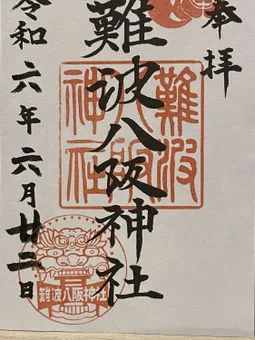 奉拝
難波八阪神社
難波
八阪
神社
令和六年六月廿二日
難波八阪神社